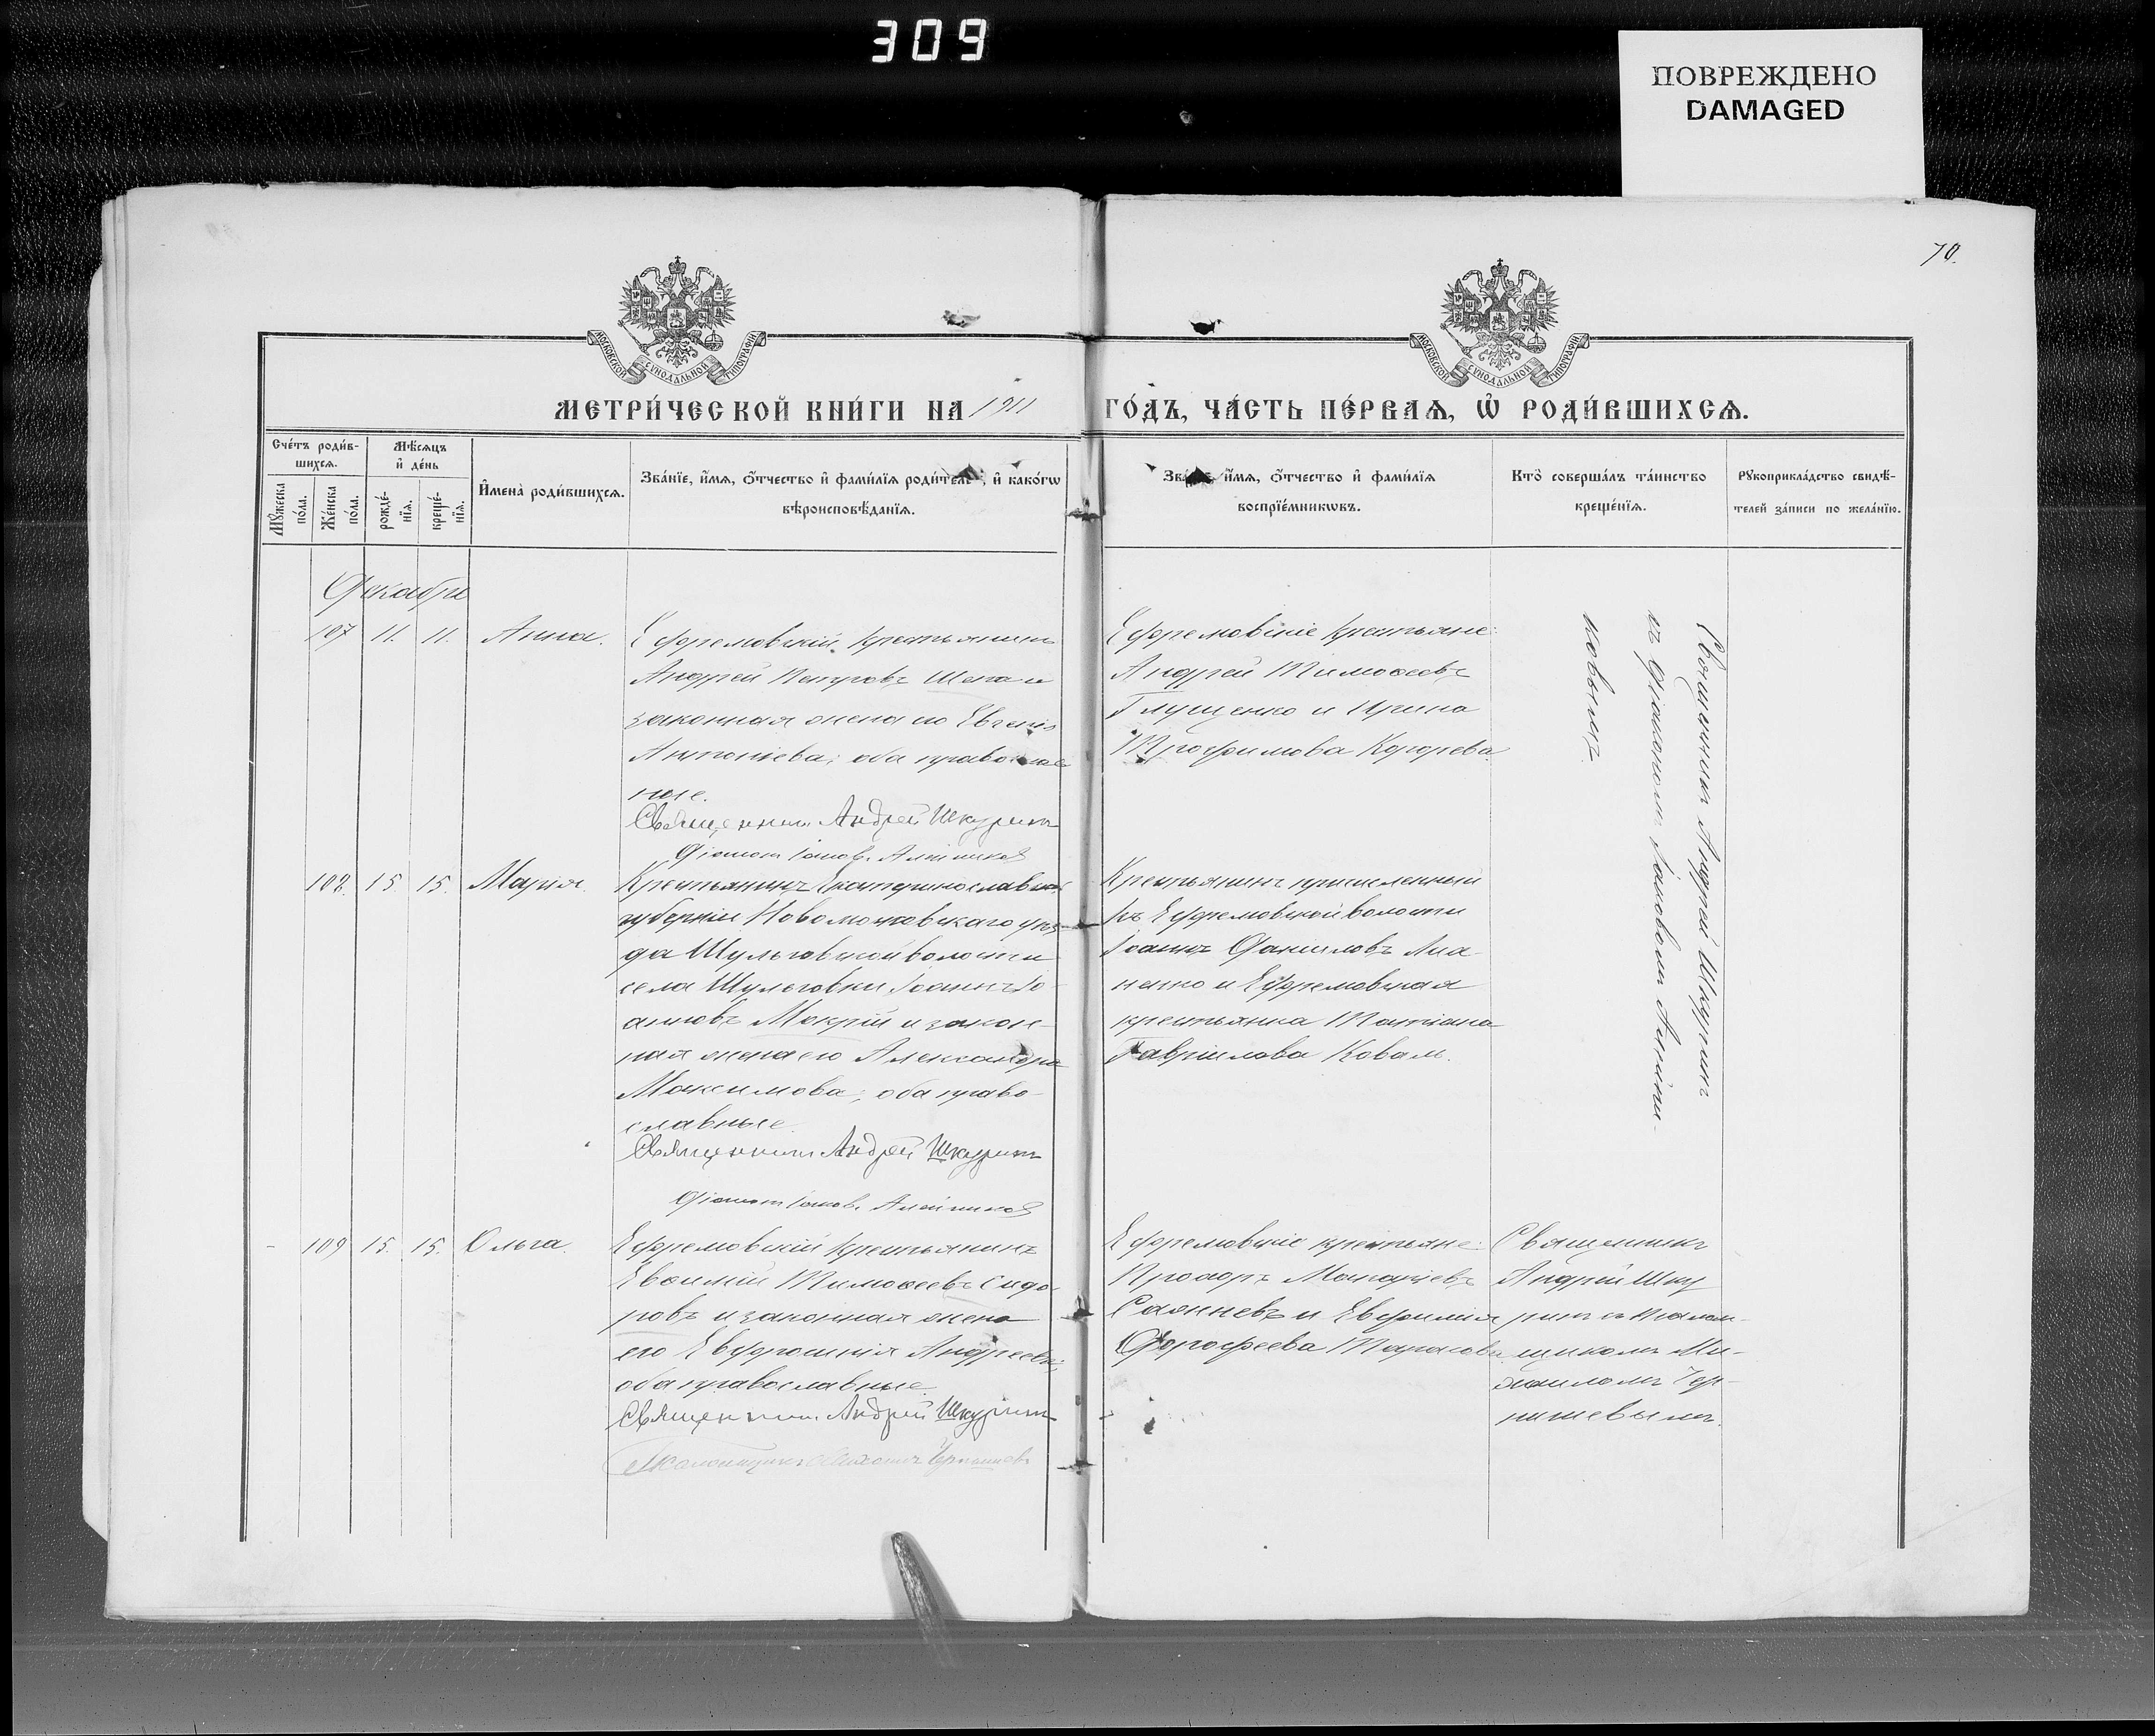 309
ПОВРЕЖДЕНО
DAMAGED
70.
МОСКОВСКОЙ СУНОДАЛЬНОЙ ТИПОГРАФІИ
МОСКОВСКОЙ СУНОДАЛЬНОЙ ТИПОГРАФІИ
МЕТРИ́ЧЕСКОЙ КНИ́ГИ НА 1911 ГО́ДЪ, ЧА́СТЬ ПЕ́РВАѦ, Ѡ҆ РОДИ́ВШИХСѦ.
Сче́тъ роди́в-
шихсѧ.
Мꙋ́жеска по́ла.
Же́нска по́ла.
Мѣ́сѧцъ
и҆ де́нь
рожде́-
нїѧ.
креще́-
нїѧ.
И҆мена̀ роди́вшихсѧ.
Зва́нїе, и҆́мѧ, ѻ҆́тчество и҆ фами́лїѧ роди́теле, и҆ како́гѡ
вѣроисповѣ́данїѧ.
и҆́мѧ, ѻ҆́тчество и҆ фами́лїѧ
воспрїе́мникѡвъ.
Кто̀ соверша́лъ та́инство
креще́нїѧ.
Рꙋкоприкла́дство свидѣ́-
телей за́писи по жела́нїю.
Декабрь
107 11. 11. Анна.
Ефремовскій крестьянинъ
Андрей Петровъ Шепа и
законная жена его Евгенія
Антоніева; оба православ
ные.
Священникъ Андрей Шкуринъ
Діаконъ Іаковъ Алейниковъ
Ефремовскіе крестьяне:
Андрей Тимоѳеевъ
Глущенко и Ирина
Трофимова Кохрева.
Священникъ Андрей Шкуринъ
съ Діакономъ Іаковомъ Алейни-
ковымъ.
108. 15. 15. Марія.
Крестьянинъ Екатеринославской
губерніи Новомосковскаго уѣз-
да Шульговской волости
села Шульговки Іоаннъ Іо-
анновъ Мокрій и закон-
ная жена его Александра
Максимова; оба право-
славные.
Священникъ Андрей Шкуринъ
Діаконъ Іаковъ Алейниковъ
Крестьянинъ причисленный
къ Ефремовской волости
Іоаннъ Даниловъ Лиа-
ненко и Ефремовская
крестьянка Татіана
Гавріилова Коваль.
109 15. 15. Ольга.
Ефремовскій крестьянинъ
Евѳимій Тимоѳеевъ Сидо-
ровъ и законная жена
его Евфросинія Андреева;
оба православные.
Священникъ Андрей Шкуринъ
Псаломщикъ Михаилъ Чернышевъ
Ефремовскіе крестьяне:
Прохоръ Макаріевъ
Саѧнневъ и Евфимія
Дорофеева Тарасова.
Священникъ
Андрей Шку
ринъ съ Псалом-
щикомъ Ми-
хаиломъ Чер-
нышевымъ.